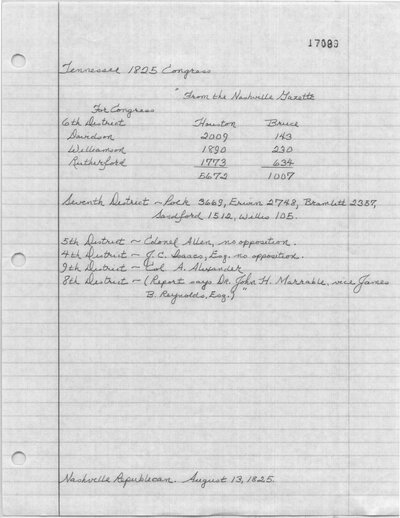 17099
Tennessee 1825 Congress
"From the Nashville Gazette
For Congress
6th District Houston Bruce
Davidson 2009 143
Williamson 1890 230
Rutherford 1773 634
5672 1007
Seventh District ~ Polk 3669, Erwin 2748, Bramlett 2387,
Sandford 1512, Willis 105.
5th District ~ Colonel Allen, no opposition.
4th District ~ J. C. Isaacs, Esq. no opposition.
9th District ~ Col. A. Alexander
8th District ~ (Report says Dr. John H. Marrable, vice James
B. Reynolds, Esq.)"
Nashville Republican. August 13, 1825.